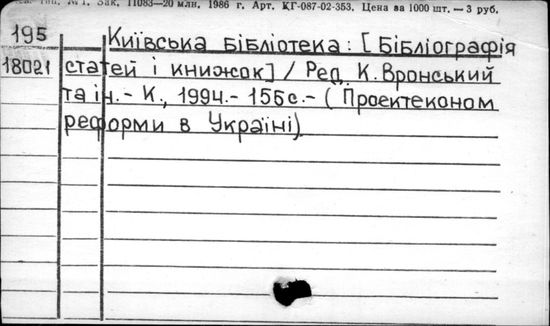 Тип. № 1. Зак. 11083—20 млн. 1986 г. Арт. КГ-087-02-353. Цена за 1000 шт. — 3 руб.
195 Київська бібліотека: [Бібліографія
18021 статей і книжок] / Ред. К. Вронський
та ін. - К., 1994. - 155с. - (Проектеконом
реформи в Україні)